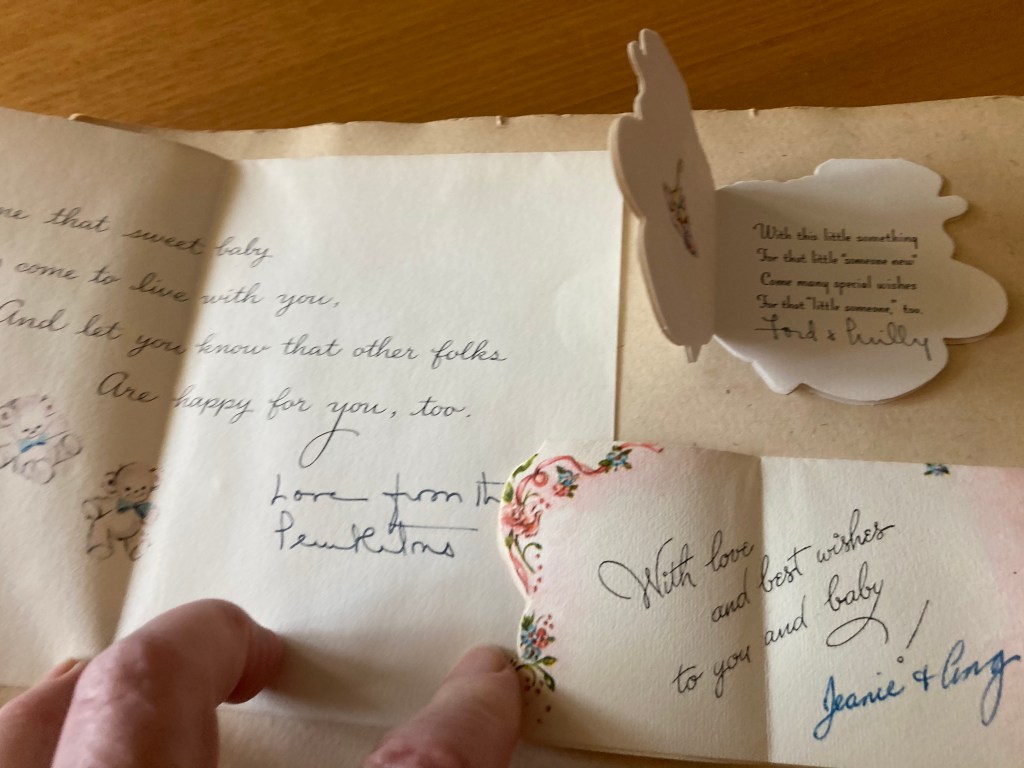 that sweet baby
come to live with you,
And let you know that other folks
Are happy for you, too.
Love from
With this little something
For that little "someone new"
Come many special wishes
For that "little someone," too.
Ford &
With love
and best wishes
to you and baby
Jeanie &